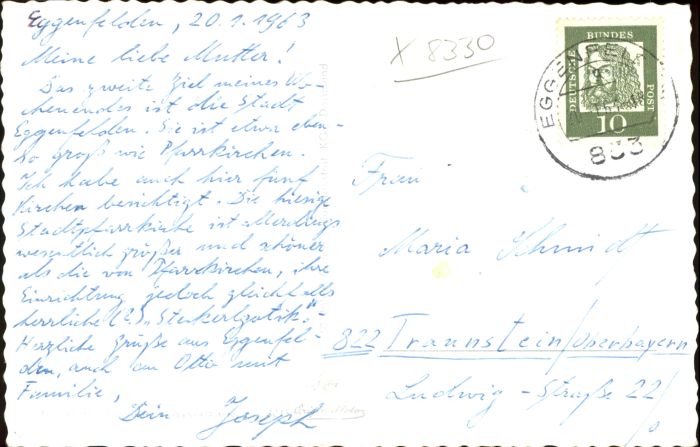 Eggenfelden, 20.1.1963
Meine liebe Mutter!
Das zweite Ziel meines Wo-
chenendes ist die Stadt
Eggenfelden. Sie ist etwa eben-
so groß wie Pfarrkirchen.
Ich habe auch hier fünf
Kirchen besichtigt. Die hiesige
Stadtpfarrkirche ist allerdings
wesentlich größer und schöner
als die von Pfarrkirchen, ihre
Einrichtung jedoch gleichfalls
herrliche (?) „Stakerlgotik"
Herzliche Grüße aus Eggenfel-
den, auch an Otto mit
Familie,
Dein Joseph
X 8330
DEUTSCHE BUNDES POST
10
EGGENFEL
833
Frau
Maria Schmidt
822 Traunstein/Oberbayern
Ludwig-Straße 22/